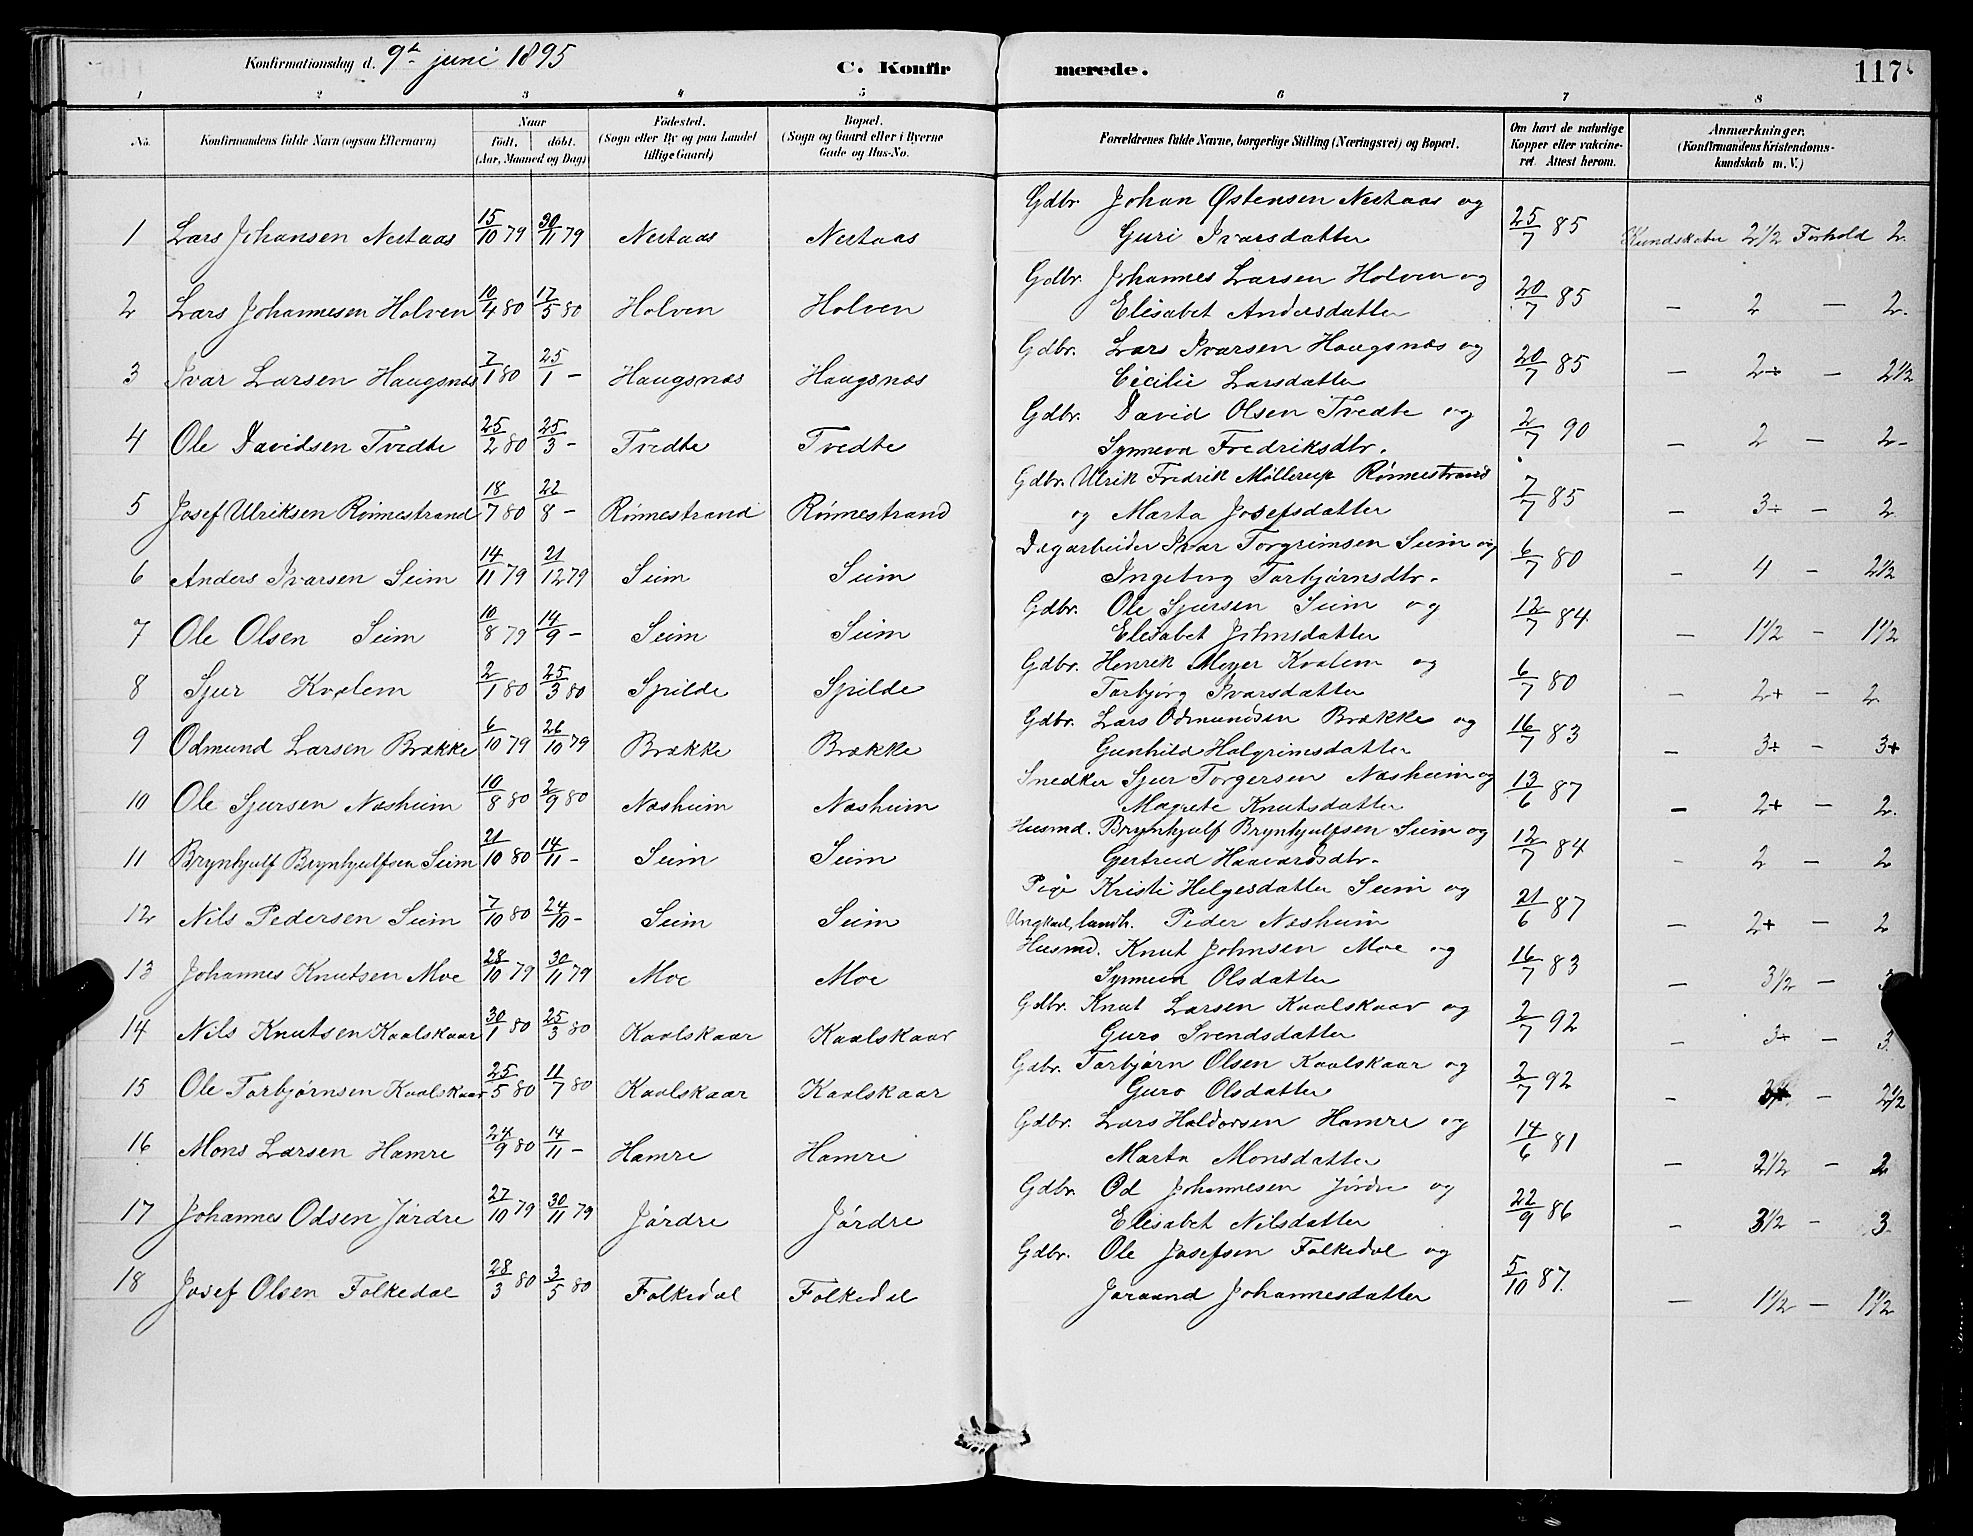 Konfirmationsdag d. 9de juni 1895 C. Konfir merede. 117
1 2 3 4 5 6 7 8
No. Konfirmandens fulde Navn (ogsaa Efternavn) Naar født, døbt. (Aar, Maaned og Dag) Fødested. (Sogn eller By og paa Landet tillige Gaard) Bopæl. (Sogn og Gaard eller i Byerne Gade og Hus-No. Forældrenes fulde Navne, borgerlige Stilling (Næringsvei) og Bopæl. Om havt de naturlige Kopper eller vakcineret. Attest herom. Anmærkninger. (Konfirmandens Kristendomskundskab m. V.)
1 Lars Johansen Nestaas 15/10 79 30/11 79 Nestaas Nestaas Gdbr. Johan Østensen Nestaas og
Guri Ivarsdatter 25/7 85 Kundskaber 2 1/2 Forhold 2.
2 Lars Johannesen Holven 10/4 80 17/5 80 Holven Holven Gdbr. Johannes Larsen Holven og
Elisabet Andersdatter 20/7 85 – 2 – 2.
3 Ivar Larsen Haugsnæs 7/1 80 25/1 – Haugsnæs Haugsnæs Gdbr. Lars Ivarsen Haugsnæs og
Cicilie Larsdatter 20/7 85 – 2÷ – 2 1/2
4 Ole Davidsen Tvedte 25/2 80 25/3 – Tvedte Tvedte Gdbr. David Olsen Tvedte og
Synneva Fredriksdtr. 2/7 90 – 2 – 2-
5 Josef Ulriksen Rønnestrand 18/7 80 22/8 – Rønnestrand Rønnestrand Gdbr. Ulrik Fredrik Møllerup Rønnestrand
og Marta Josefsdatter 7/7 85 – 3÷ – 2
6 Anders Ivarsen Seim 14/11 79 21/12 79 Seim Seim Dagarbeider Ivar Torgrimsen Seim og
Ingeborg Torbjørnsdtr. 6/7 80 – 4 – 2 1/2
7 Ole Olsen Seim 10/8 79 14/9 – Seim Seim Gdbr. Ole Sjursen Seim og
Elisabet Johnsdatter 12/7 84 – 1 1/2 – 1 1/2
8 Sjur Kvalem 2/1 80 25/3 80 Spilde Spilde Gdbr. Henrik Meyer Kvalem og
Torbjørg Ivarsdatter 6/7 80 – 2+ – 2
9 Odmund Larsen Brække 6/10 79 26/10 79 Brække Brække Gdbr. Lars Odmundsen Brække og
Gunhild Halgrimsdatter 16/7 83 – 3÷ – 3+
10 Ole Sjursen Næsheim 10/8 80 2/9 80 Næsheim Næsheim Snedker Sjur Torgersen Næsheim og
Magrete Knutsdatter 13/6 87 – 2+ – 2.
11 Brynhjulf Brynhjulfsen Seim 21/10 80 14/11 – Seim Seim Husmd. Brynhjulf Brynhjulfsen Seim og
Gjertrud Haavardsdtr. 12/7 84 – 2 – 2
12 Nils Pedersen Seim 7/10 80 24/10 – Seim Seim Pige Kristi Helgesdatter Seim og
Ungkarl, landh. Peder Næsheim 21/6 87 – 2+ – 2
13 Johannes Knutsen Moe 28/10 79 30/11 79 Moe Moe Husmd. Knut Johnsen Moe og
Synneva Olsdatter 16/7 83 – 3 1/2 – 3
14 Nils Knutsen Kaalskaar 30/1 80 25/3 80 Kaalskaar Kaalskaar Gdbr. Knut Larsen Kaalskaar og
Guro Svendsdatter 2/7 92 – 3÷ – 3.
15 Ole Torbjørnsen Kaalskaar 25/5 80 11/7 80 Kaalskaar Kaalskaar Gdbr. Torbjørn Olsen Kaalskaar og
Guro Olsdatter 2/7 92 – – 2 1/2
16 Mons Larsen Hamre 24/9 80 14/11 – Hamre Hamre Gdbr. Lars Haldorsen Hamre og
Marta Monsdatter 14/6 81 – 2 1/2 – 2
17 Johannes Odsen Jørdre 27/10 79 30/11 79 Jørdre Jørdre Gdbr. Od Johannesen Jørdre og
Elisabet Nilsdatter 22/9 86 – 3 1/2 – 3
18 Josef Olsen Folkedal 28/3 80 3/5 80 Folkedal Folkedal Gdbr. Ole Josefsen Folkedal og
Joraand Johannesdatter 5/10 87. – 1 1/2 – 1 1/2